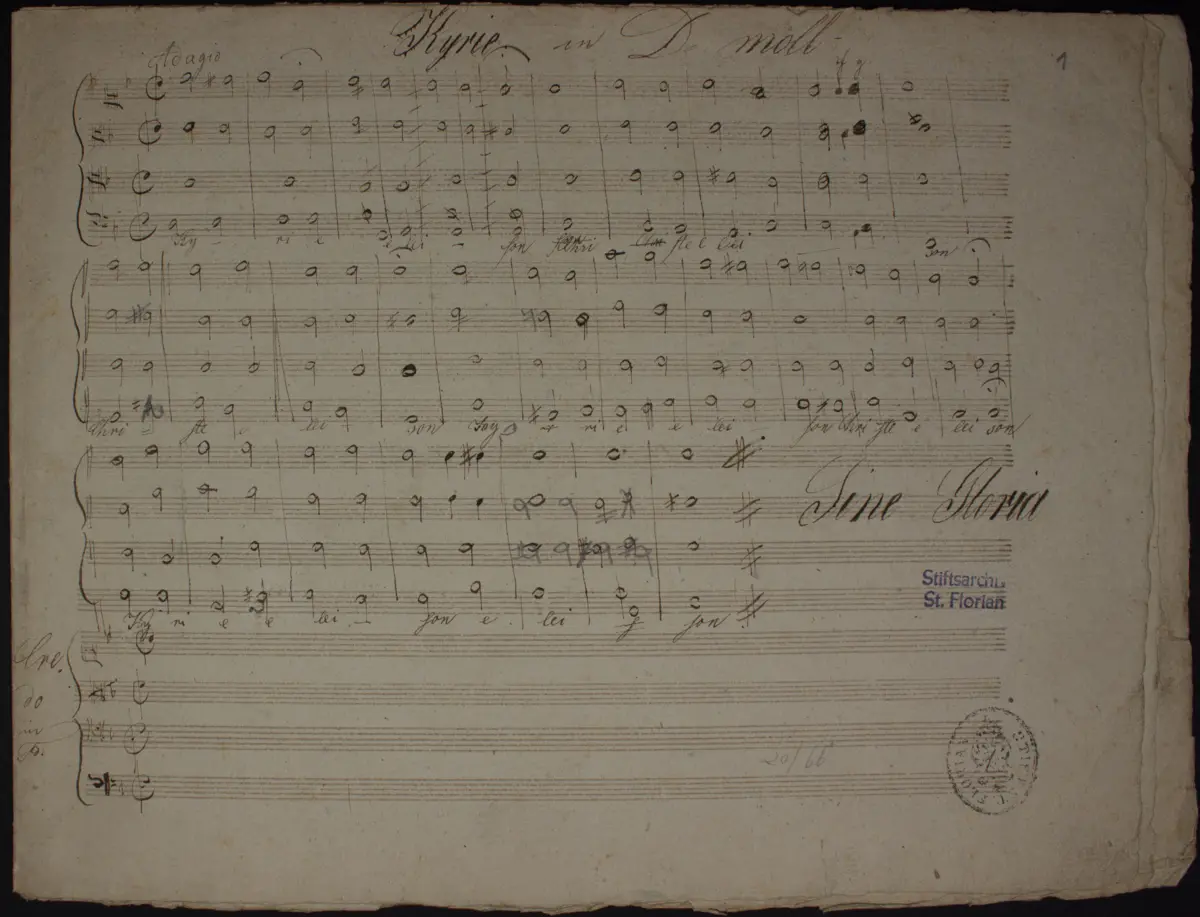 Kyrie in D moll
Adagio
1
Ky - ri e e lei - son Chri ste e lei son
Chri - ste e lei - son Ky - ri e e lei - son Chri ste e lei son
Sine Gloria
Stiftsarchiv
St. Florian
Ky ri e e lei - son e lei son.
Cre
do
in
20/66